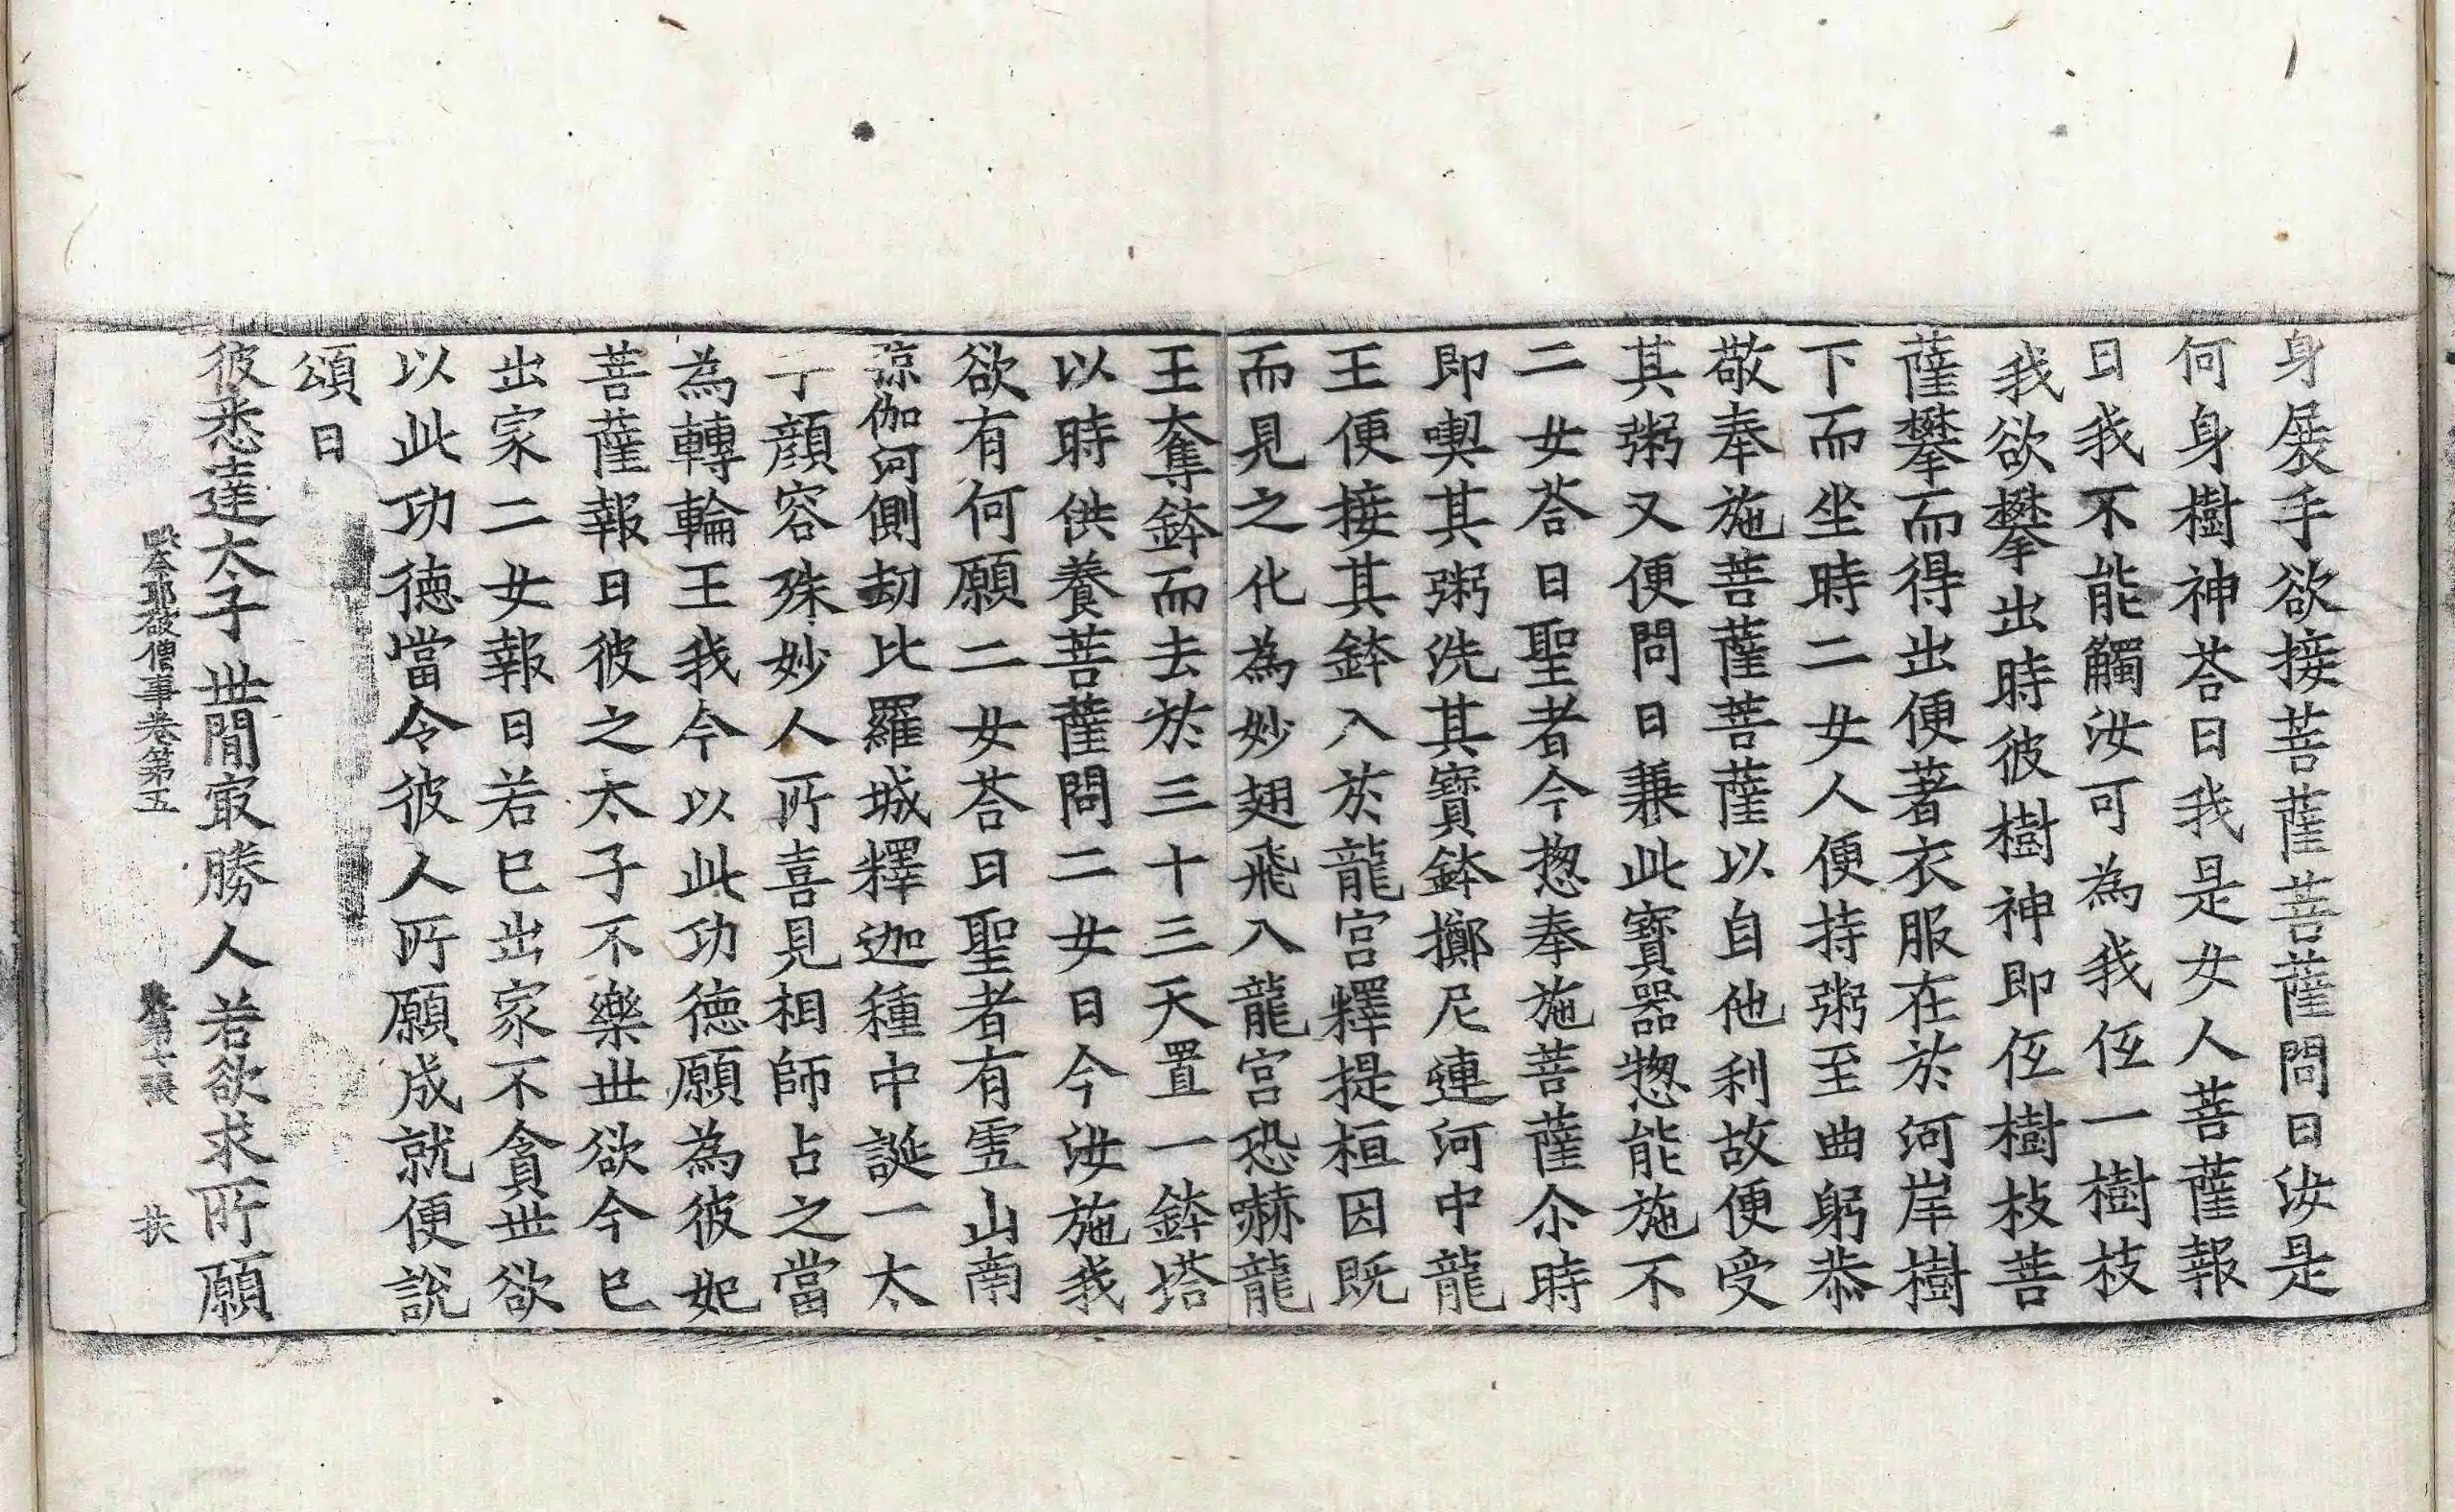 身展手欲接菩薩菩薩問曰汝是
何身樹神荅曰我是女人菩薩報
曰我不能觸汝可為我仾一樹枝
我欲攀出時彼樹神即仾樹枝菩
薩攀而得出便著衣服在於河岸樹
下而坐時二女人便持粥至曲躬恭
敬奉施菩薩菩薩以自他利故便受
其粥又便問曰兼此寶器惣能施不
二女荅曰聖者今惣奉施菩薩尒時
即喫其粥洗其寶鉢擲尼連河中龍
王便接其鉢入於龍宮釋提桓因既
而見之化為妙翅飛入龍宮恐嚇龍
王奪鉢而去於三十三天置一鉢塔
以時供養菩薩問二女曰今汝施我
欲有何願二女荅曰聖者有雪山南
弶伽河側劫比羅城釋迦種中誕一太
子顔容殊妙人所喜見相師占之當
為轉輪王我今以此功德願為彼妃
菩薩報曰彼之太子不樂世欲今已
出家二女報曰若已出家不貪世欲
以此功德當令彼人所願成就便說
頌曰
彼悉達太子世閒㝡勝人若欲求所願
破僧事卷第五 第十張 扶